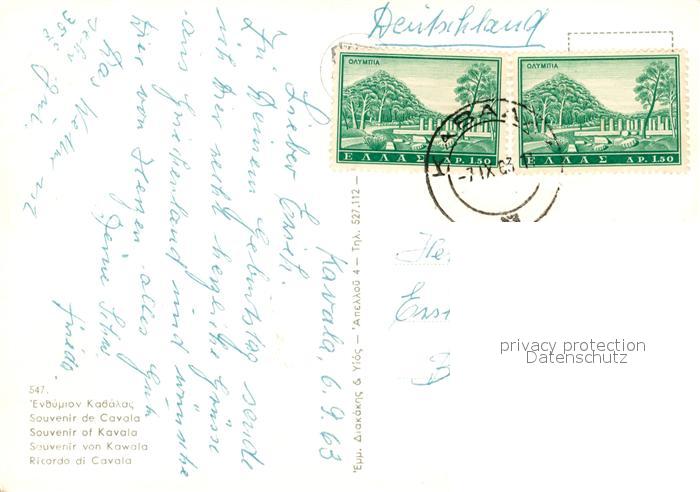 Deutschland
ΟΛΥΜΠΙΑ
ΕΛΛΑΣ ΔΡ. 1.50
ΟΛΥΜΠΙΑ
ΕΛΛΑΣ ΔΡ. 1.50
ΚΑΒΑΛΑ
-7 IX 63
Kavala, 6.9.63
Lieber Erich.
Zu Deinem Geburtstag sende
ich Dir recht herzliche Grüsse
aus Griechenland und wünsche
Dir von Herzen alles Gute
Deine
Das Wetter ist
sehr
35°
Έμμ. Διακάκης & Υίός – Ἀπελλοῦ 4 – Τηλ. 527.112 –
547.
Ἐνθύμιον Καβάλας
Souvenir de Cavala
Souvenir of Kavala
Souvenir von Kawala
Ricordo di Cavala
privacy protection
Datenschutz